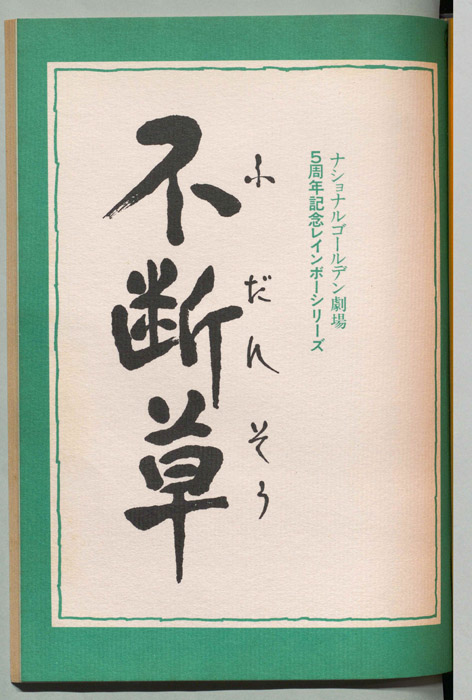 ナショナルゴールデン劇場
5周年記念レインボーシリーズ
ふだんそう
不断草